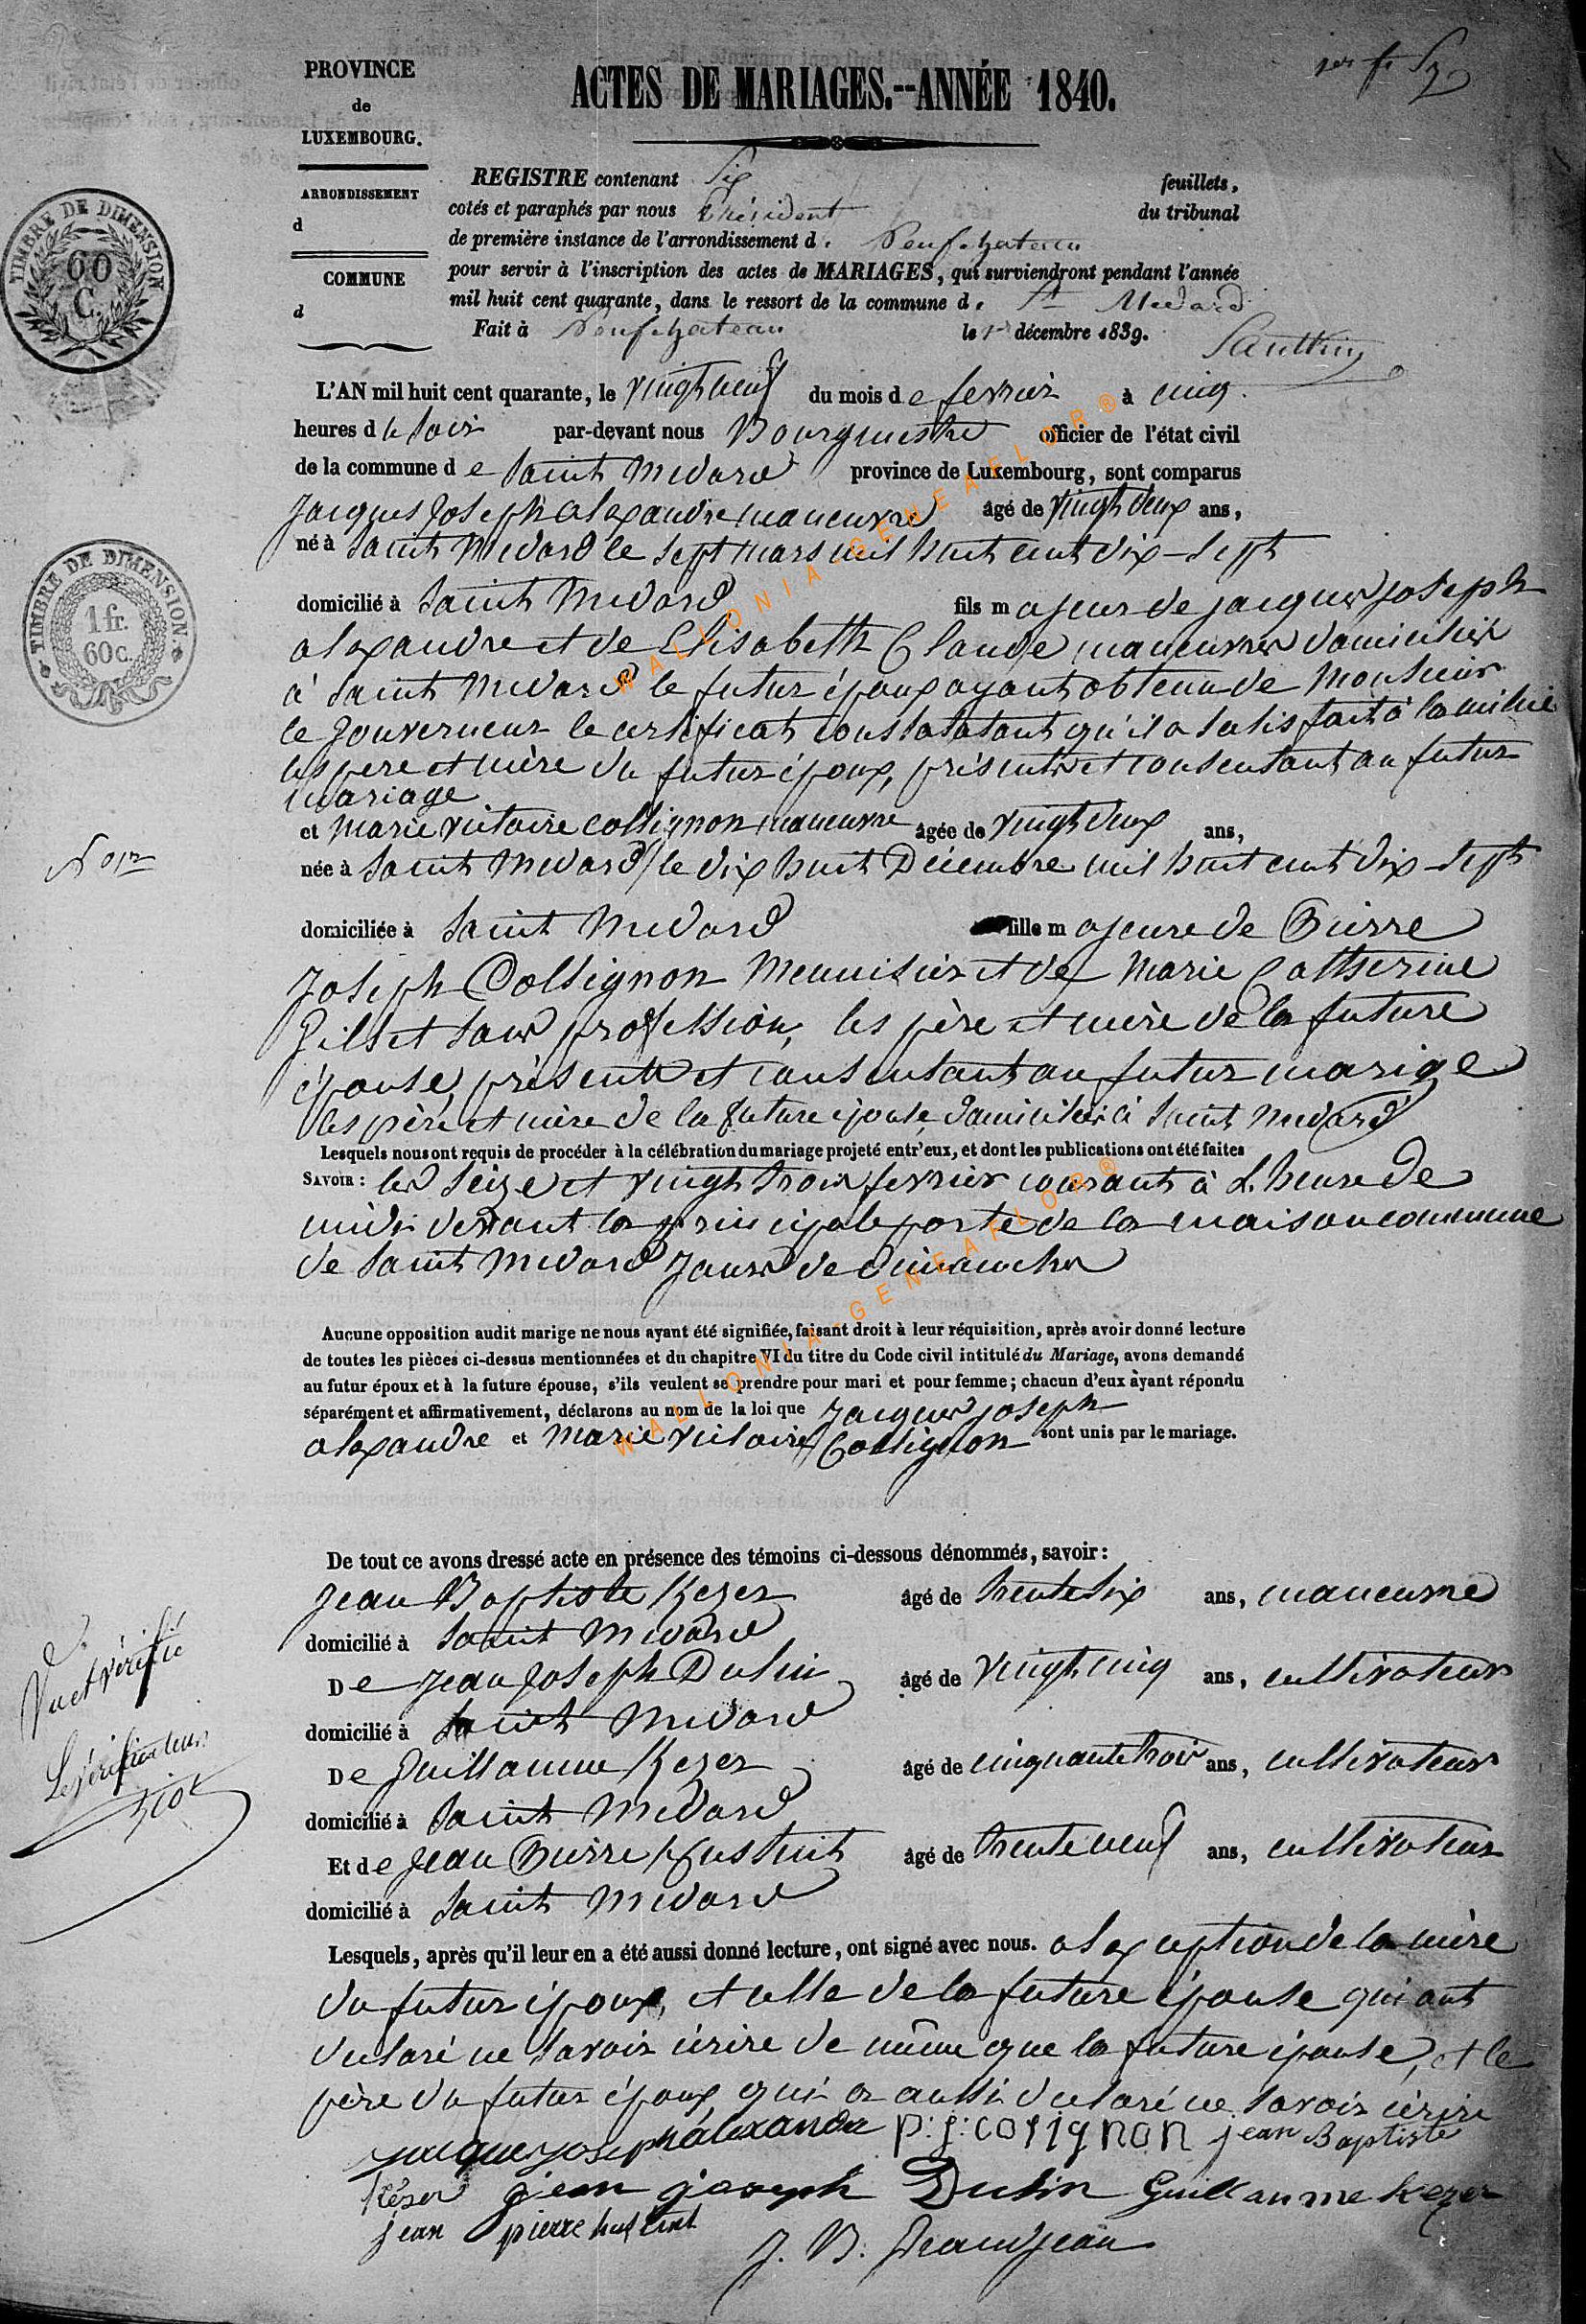 PROVINCE
de
LUXEMBOURG.
ARRONDISSEMENT
d
COMMUNE
d
ACTES DE MARIAGES.--ANNÉE 1840.
REGISTRE contenant Six feuillets,
cotés et paraphés par nous Président du tribunal
de première instance de l'arrondissement d. Neufchateau
pour servir à l'inscription des actes de MARIAGES, qui surviendront pendant l'année
mil huit cent quarante, dans le ressort de la commune d. St Medard
Fait à Neufchateau le 1er décembre 1839.
TIMBRE DE DIMENSION
60
C.
TIMBRE DE DIMENSION
1 fr.
60 c.
L'AN mil huit cent quarante, le vingt neuf du mois de fevrier à cinq
heures du soir par-devant nous Bourgmestre officier de l'état civil
de la commune de Saint Medard province de Luxembourg, sont comparus
Jacques Joseph alexandre maneuvre âgé de vingt deux ans,
né à Saint Medard le sept mars mil huit cent dix-sept
domicilié à Saint Medard fils majeur de jacques joseph
alexandre et de Elisabeth Claude maneuvres domiciliés
à Saint Medard le futur époux ayant obtenu de Monsieur
le gouverneur le certificat constatatant qu'il a satisfait à la milice
les pere et mère du futur époux, présents et consentant au futur
mariage
et marie victoire collignon maneuvre âgée de vingt deux ans,
née à Saint Medard le dix huit Décembre mil huit cent dix-sept
domiciliée à Saint Medard fille majeure de Pierre
Joseph Collignon Menuisier et de Marie Catherine
Gillet sans profession, les père et mère de la future
épouse, présents et consentant au futur marige
les père et mère de la future épouse domiciliés à Saint Medard
Lesquels nous ont requis de procéder à la célébration du mariage projeté entr'eux, et dont les publications ont été faites
SAVOIR : les seize et vingt trois fevrier courant à L'heure de
midi devant la principale porte de la maison commune
de Saint Medard jours de dimanches
Aucune opposition audit marige ne nous ayant été signifiée, faisant droit à leur réquisition, après avoir donné lecture
de toutes les pièces ci-dessus mentionnées et du chapitre VI du titre du Code civil intitulé du Mariage, avons demandé
au futur époux et à la future épouse, s'ils veulent se prendre pour mari et pour femme ; chacun d'eux àyant répondu
séparément et affirmativement, déclarons au nom de la loi que Jacques joseph
alexandre et marie victoire Collignon sont unis par le mariage.
De tout ce avons dressé acte en présence des témoins ci-dessous dénommés, savoir :
Jean Baptiste Kezer âgé de trente six ans, maneuvre
domicilié à Saint Medard
De jean joseph Dulin âgé de vingt cinq ans, cultivateur
domicilié à Saint Medard
De Guillaume Kezer âgé de cinquante trois ans, cultivateur
domicilié à Saint Medard
Et de jean Pierre Hustint âgé de trente neuf ans, cultivateur
domicilié à Saint Medard
Lesquels, après qu'il leur en a été aussi donné lecture, ont signé avec nous. al exception de la mère
du futur époux, et celle de la future épouse qui ont
declaré ne savoir écrire de même que la future épouse, et le
père du futur époux qui a aussi declaré ne savoir écrire
jacques joseph alexandre p: j: colignon jean Baptiste
kézer jean joseph Dulin Guillaume kezer
jean pierre hustint
J. B. Grandjean
Vu et vérifié
Le vérificateur
WALLONIA-GENEAFLOR ®
WALLONIA-GENEAFLOR ®